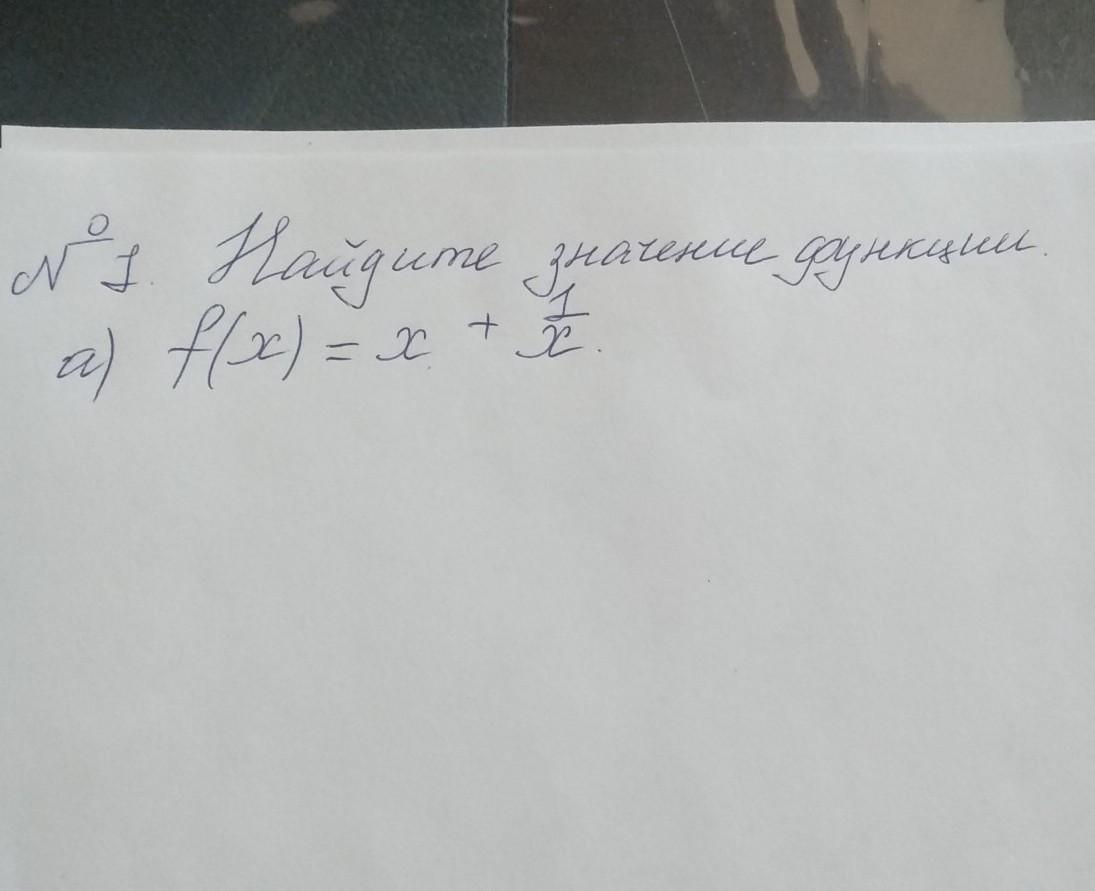 № 1. Найдите значение функции.
а) f(x) = x + 1/x.